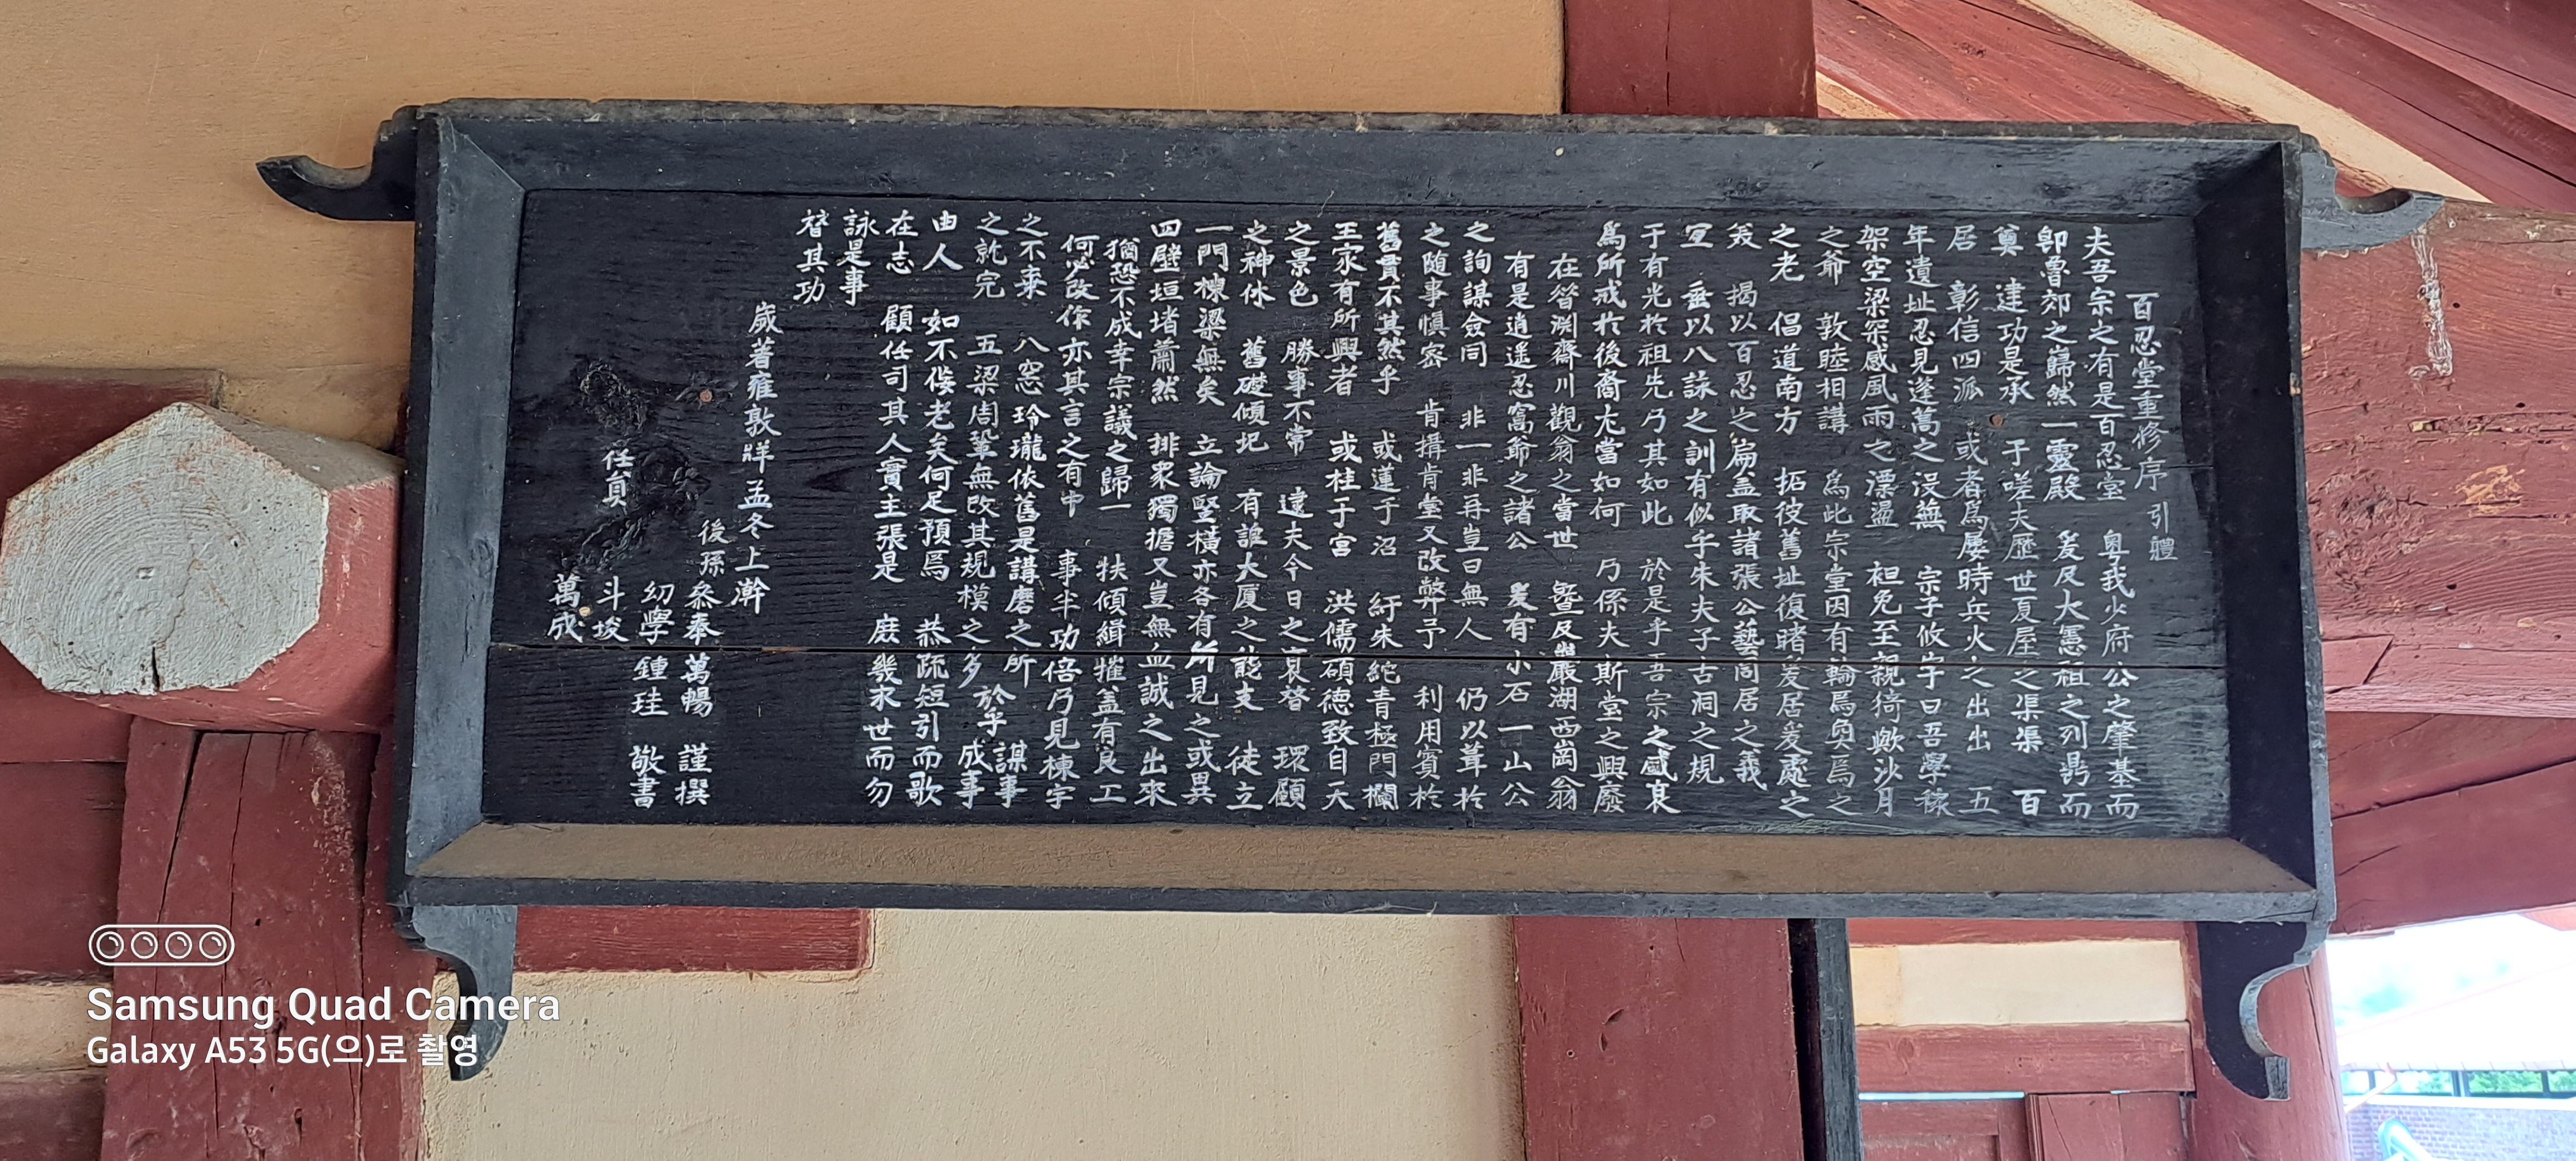 百忍堂重修序 引體
夫吾宗之有是百忍堂 粤我少府公之肇基而
卽魯郊之巋然一靈殿 爰及大憲祖之列鼎而
奠 建功是承 于嗟夫歷世夏屋之渠渠 百
居 彰信四派 或者爲屢時兵火之出出 五
年遺址忍見蓬萬之沒蕪 宗子攸字曰吾學稼
架空梁罙感風雨之漂盪 袒免至親猗歟沙月
之爺 敦睦相講 爲此宗堂因有輪焉奐焉之
之老 倡道南方 拓彼舊址復睹爰居爰處之
美 揭以百忍之扁盖取諸張公藝同居之義
宜 垂以八詠之訓有似乎朱夫子古洞之規
于有光於祖先乃其如此 於是乎吾宗之盛衰
爲所戒於後裔尤當如何 乃係夫斯堂之興廢
在昝渊齋川觀翁之當世 曁及巖湖西崗翁
有是逍遥忍窩爺之諸公 爰有小石一山公
之詢謀僉同 非一非再豈曰無人 仍以葺於
之随事愼密 肯搆肯堂又改弊予 利用賓於
舊貫不其然乎 或蓮于沼 紆朱綰青極門欄
王家有所興者 或桂于宮 洪儒碩德致自天
之景色 勝事不常 逮夫今日之衰替 環顧
之神休 舊礎傾圮 有誰大厦之能支 徒立
一門棟梁無矣 立論竪橫亦各有所見之或異
四壁垣堵蕭然 排衆獨擔又豈無血誠之出來
猶恐不成幸宗議之歸一 扶傾緝摧盖有良工
何必改作亦其言之有中 事半功倍乃見棟宇
之不秉 八窓玲瓏依舊是講磨之所 謀事
之就完 五梁周鞏無改其規模之多 於乎 成事
由人 如不侫老矣何足預焉 恭疏短引而歌
在志 顧任司其人實主張是 庶幾來世而勿
詠是事
替其功
歲著雍敦牂孟冬上澣
後孫 叅奉 萬暢 謹撰
幼學 鍾珪 敬書
任員 斗埈
萬成
Samsung Quad Camera
Galaxy A53 5G(으)로 촬영